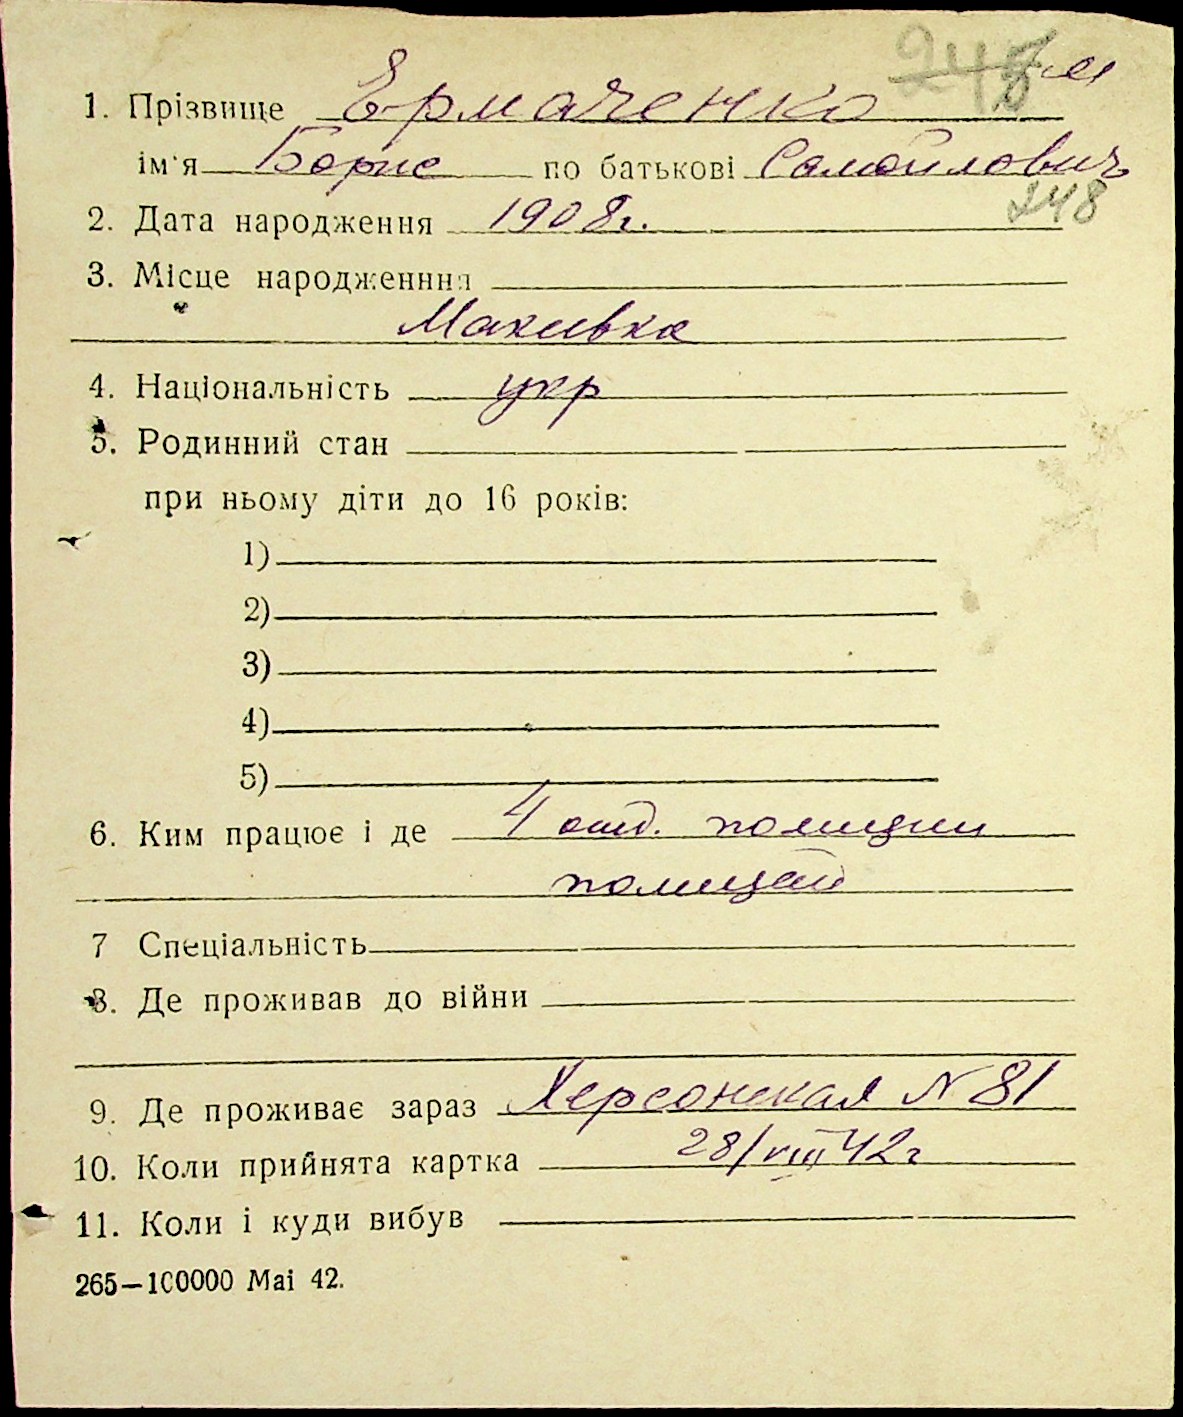 1. Прізвище Ермаченко м
ім'я Борис по батькові Самойлович
248
2. Дата народження 1908г.
3. Місце народженння
Макивка
4. Національність укр
5. Родинний стан
при ньому діти до 16 років:
1)
2)
3)
4)
5)
6. Ким працює і де 4 отд. полиции
полицай
7 Спеціальність
8. Де проживав до війни
9. Де проживає зараз Херсонская N 81
10. Коли прийнята картка 28/VIII 42г
11. Коли і куди вибув
265—100000 Mai 42.